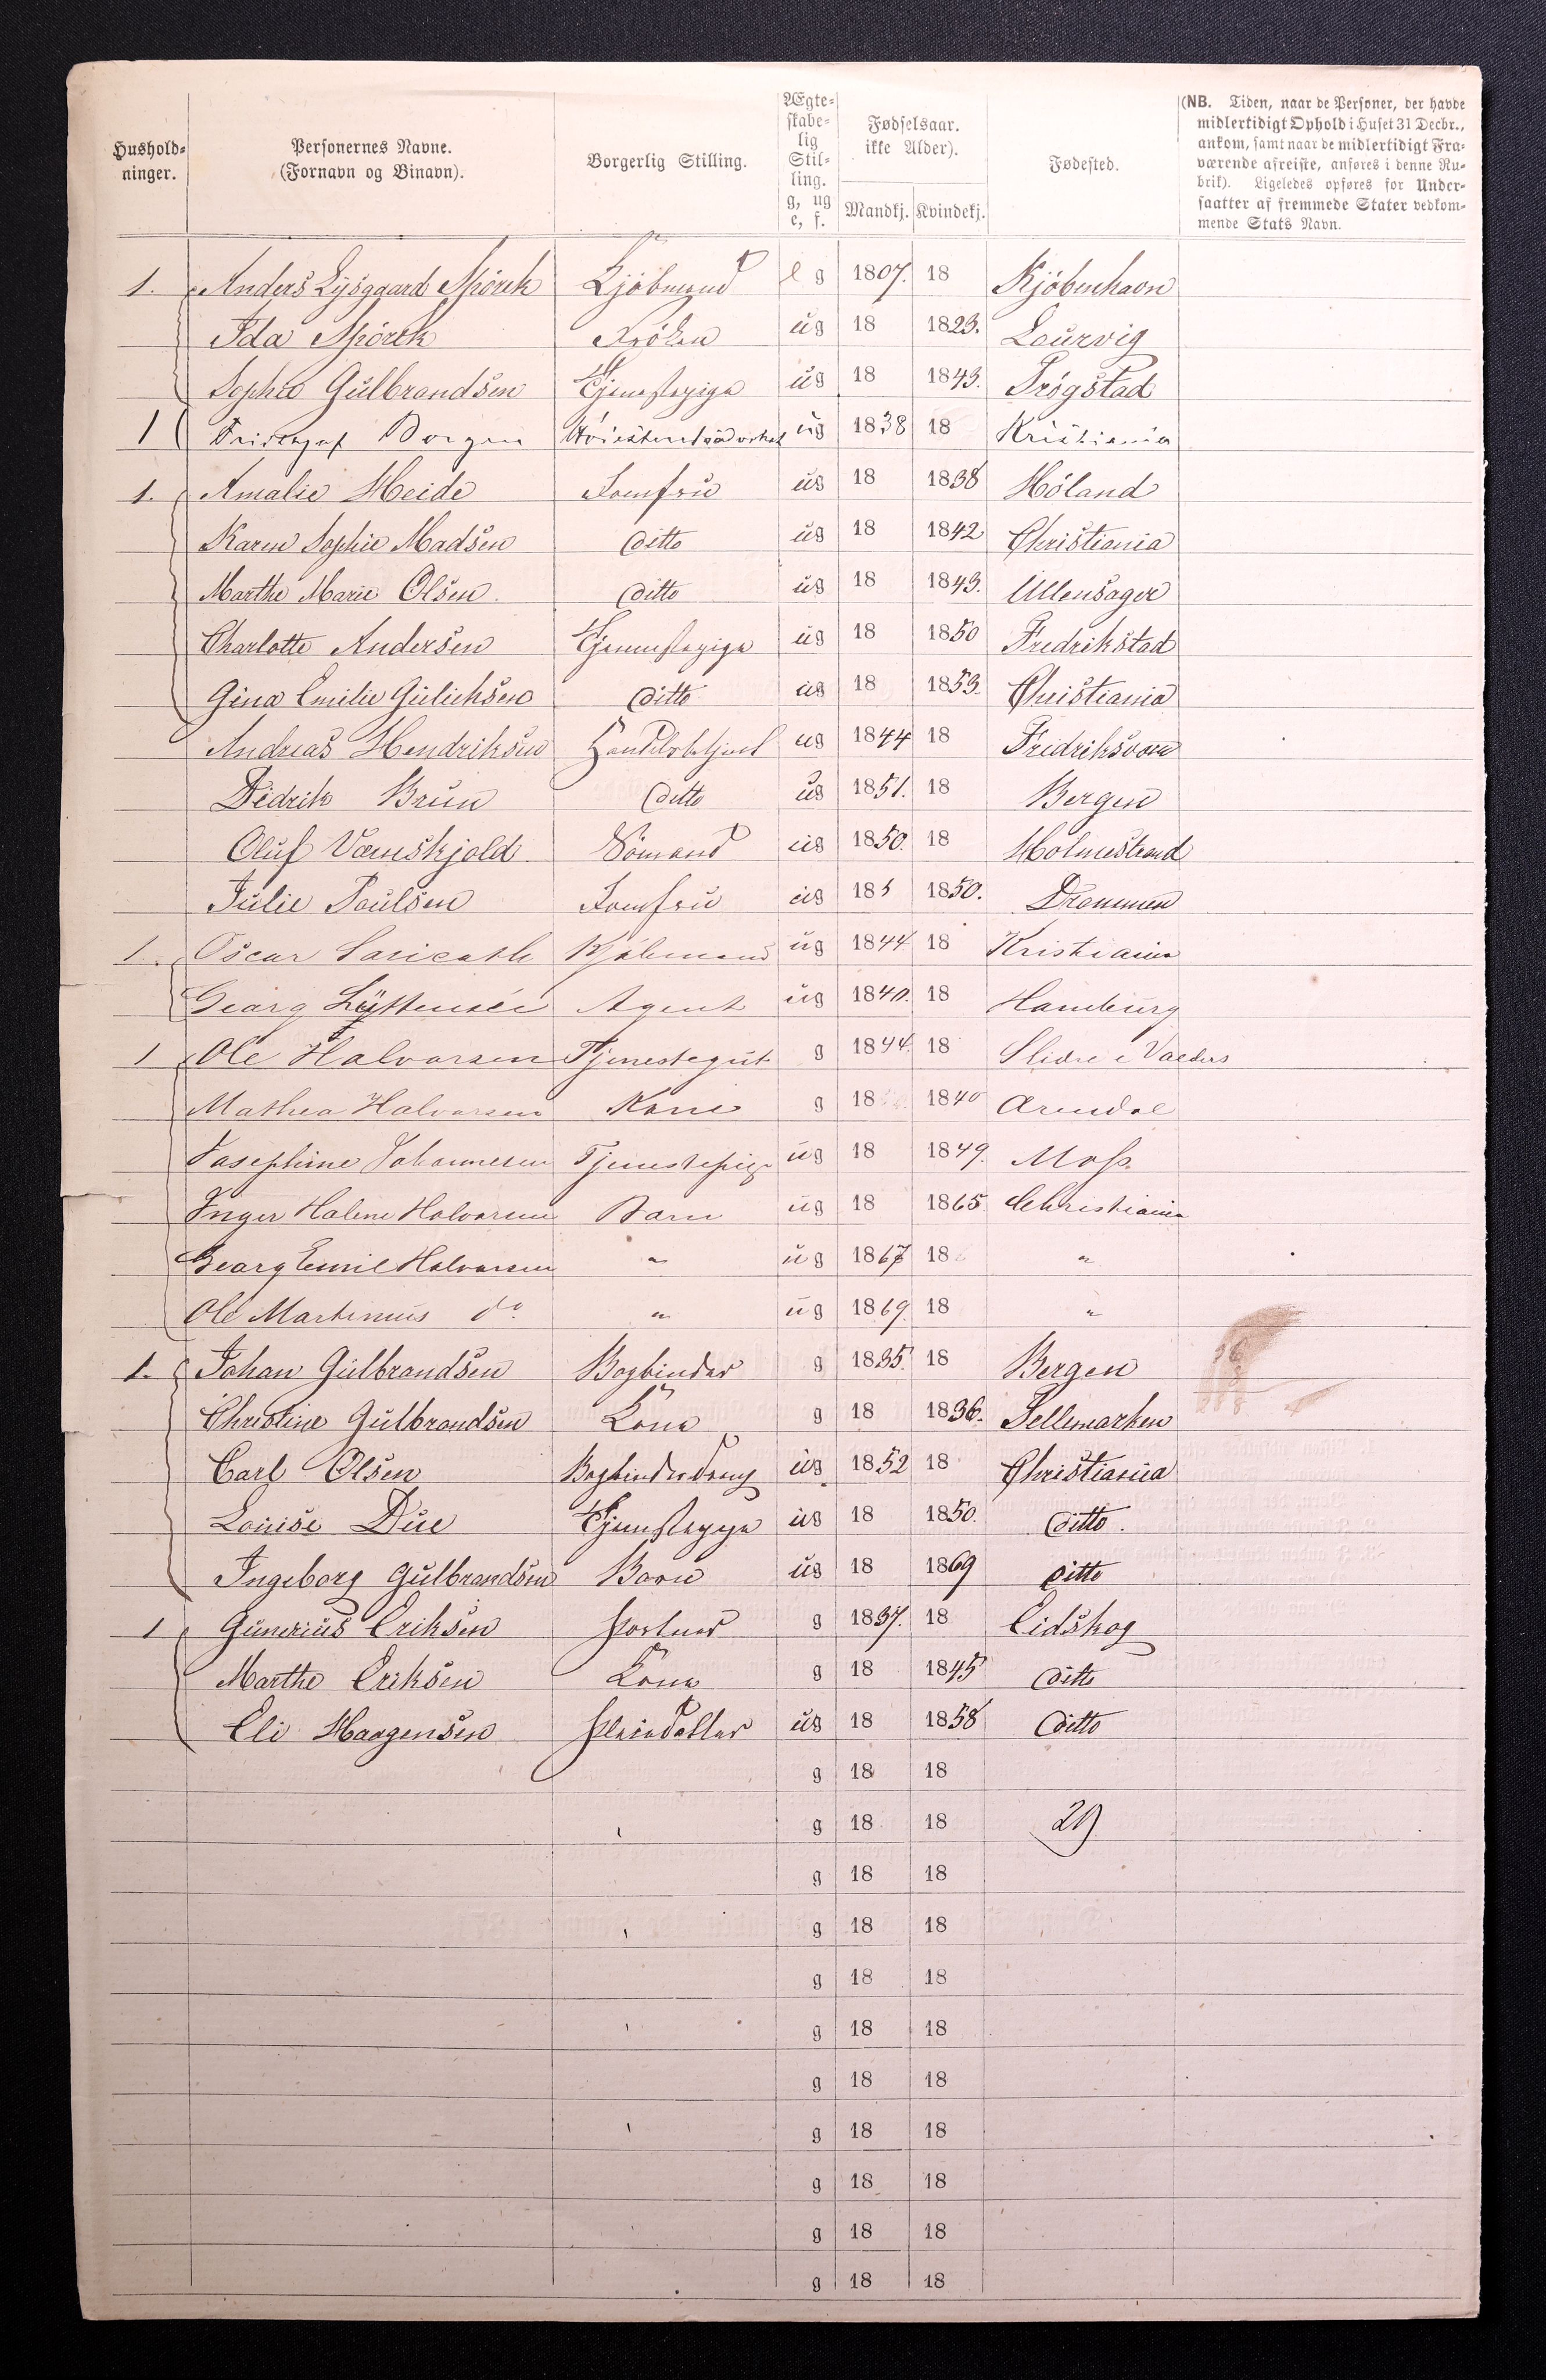 Hushold-
ninger.
Personernes Navne.
(Fornavn og Binavn).
Borgerlig Stilling.
Ægte-
skabe-
lig
Stil-
ling.
g, ug
e, f.
Fødselsaar.
ikke Alder).
Mandkj. Kvindekj.
Fødested.
(NB. Tiden, naar de Personer, der havde
midlertidigt Ophold i Huset 31 Decbr.,
ankom, samt naar de midlertidigt Fra-
værende afreiste, anføres i denne Ru-
brik). Ligeledes opføres for Under-
saatter af fremmede Stater vedkom-
mende Stats Navn.
1. Anders Lysgaard Spörck Kjöbmand e g 1807. 18 Kjöbenhavn
Ida Spörck Fröken ug 18 1823. Laurvig
Sophie Gulbrandsen Tjenestepige ug 18 1843. Trögstad
1 Borgen ug 1838 18 Kristiania
1. Amalie Heide Jomfru ug 18 1838 Höland
Karen Sophie Madsen Ditto ug 18 1842 Christiania
Marthe Marie Olsen Ditto ug 18 1843. Ullensager
Charlotte Andersen Tjenestepige ug 18 1850 Fredrikstad
Gina Emilie Gulichsen Ditto ug 18 1853. Christiania
Andreas Hendriksen ug 1844 18 Fredriksværn
Didrik Brun Ditto ug 1851. 18 Bergen
Oluf Værnskjold Sömand ug 1850. 18 Holmestrand
Julie Paulsen Jomfru ug 18 1850. Drammen
1. Oscar Kjöbmand ug 1844 18 Kristiania
Georg Agent ug 1840. 18 Hamburg
1 Ole Halvorsen Tjenestegut g 1844. 18 Slidre i Valders
Mathea Halvorsen Kone g 18 1840 Arendal
Josephine Johannesen Tjenestepige ug 18 1849. Moss
Inger Halvorsen Barn ug 18 1865 Christiania
Georg Emil Halvorsen " ug 1867 18 "
Ole Martinius do " ug 1869. 18 "
1. Johan Gulbrandsen Bogbinder g 1835. 18 Bergen
Christine Gulbrandsen Kone g 18 1836. Tellemarken
Carl Olsen Bogbinderdreng ug 1852 18 Christiania
Louise Due Tjenestepige ug 18 1850. Ditto.
Ingeborg Gulbrandsen Barn ug 18 1869 Ditto
1 Gunerius Eriksen Portner g 1837. 18 Eidskog
Marthe Eriksen Kone g 18 1845 Ditto
Eli Haagensen Pleiedatter ug 18 1858 Ditto
g 18 18
g 18 18 29
g 18 18
g 18 18
g 18 18
g 18 18
g 18 18
g 18 18
g 18 18
g 18 18
g 18 18